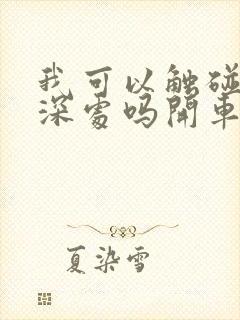 我可以触碰
深处吗開車
夏染雪